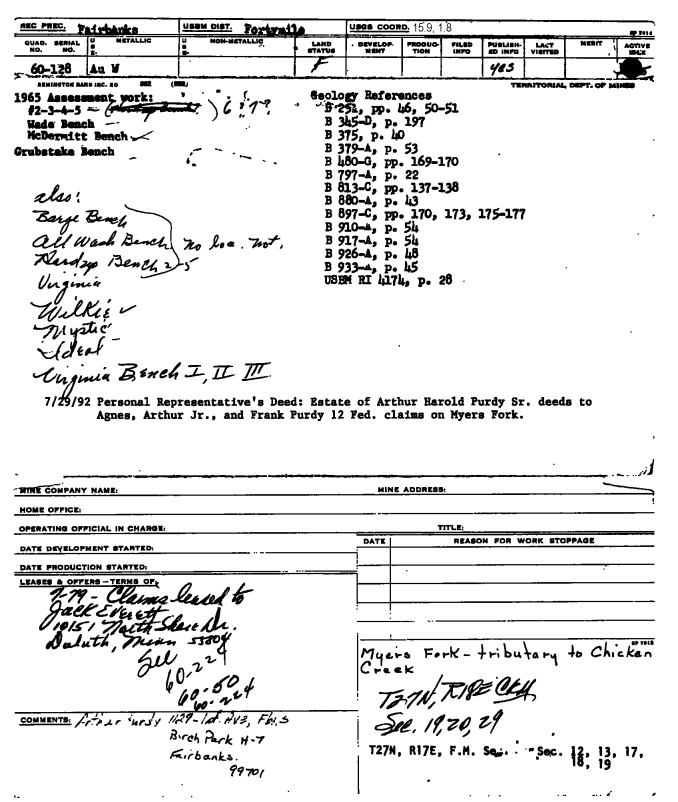 REC PREC. Fairbanks USBM DIST. Fortymile USGS COORD. 15.9, 1.8
QUAD. NO. SERIAL NO. METALLIC NON-METALLIC LAND STATUS DEVELOPMENT PRODUCTION FILED INFO PUBLISHED INFO LAST VISITED MERIT ACTIVE IDLE
60-128 Au W F yes
REMINGTON RAND INC. TERRITORIAL DEPT. OF MINES
1965 Assessment work:
#2-3-4-5 - ( ) 6 ? 7?
Wade Bench -
McDermitt Bench
Grubstake Bench -
Geology References
B 252, pp. 46, 50-51
B 345-D, p. 197
B 375, p. 40
B 379-A, p. 53
B 480-G, pp. 169-170
B 797-A, p. 22
B 813-C, pp. 137-138
B 880-A, p. 43
B 897-C, pp. 170, 173, 175-177
B 910-A, p. 54
B 917-A, p. 54
B 926-A, p. 48
B 933-A, p. 45
USBM RI 4174, p. 28
also:
Barge Bench
All Wash Bench no loc. not.
Bench 2-5
Virginia
Wilkie ✓
Mystic
Ideal -
Virginia Bench I, II III
7/29/92 Personal Representative's Deed: Estate of Arthur Harold Purdy Sr. deeds to
Agnes, Arthur Jr., and Frank Purdy 12 Fed. claims on Myers Fork.
MINE COMPANY NAME: MINE ADDRESS:
HOME OFFICE:
OPERATING OFFICIAL IN CHARGE: TITLE:
DATE DEVELOPMENT STARTED:
DATE REASON FOR WORK STOPPAGE
DATE PRODUCTION STARTED:
LEASES & OFFERS-TERMS OF:
7-79 - Claims leased to
Jack Everett
10151 North Shore Dr.
Duluth, Minn 55804
See
60-224
60-50
60-224
Myers Fork - tributary to Chicken
Creek
T27N, R18E CRM
Sec. 19, 20, 29
T27N, R17E, F.M. Sec. 12, 13, 17,
18, 19
COMMENTS: Arthur Purdy 1129-1st Ave, Fbks
Birch Park H-7
Fairbanks.
99701